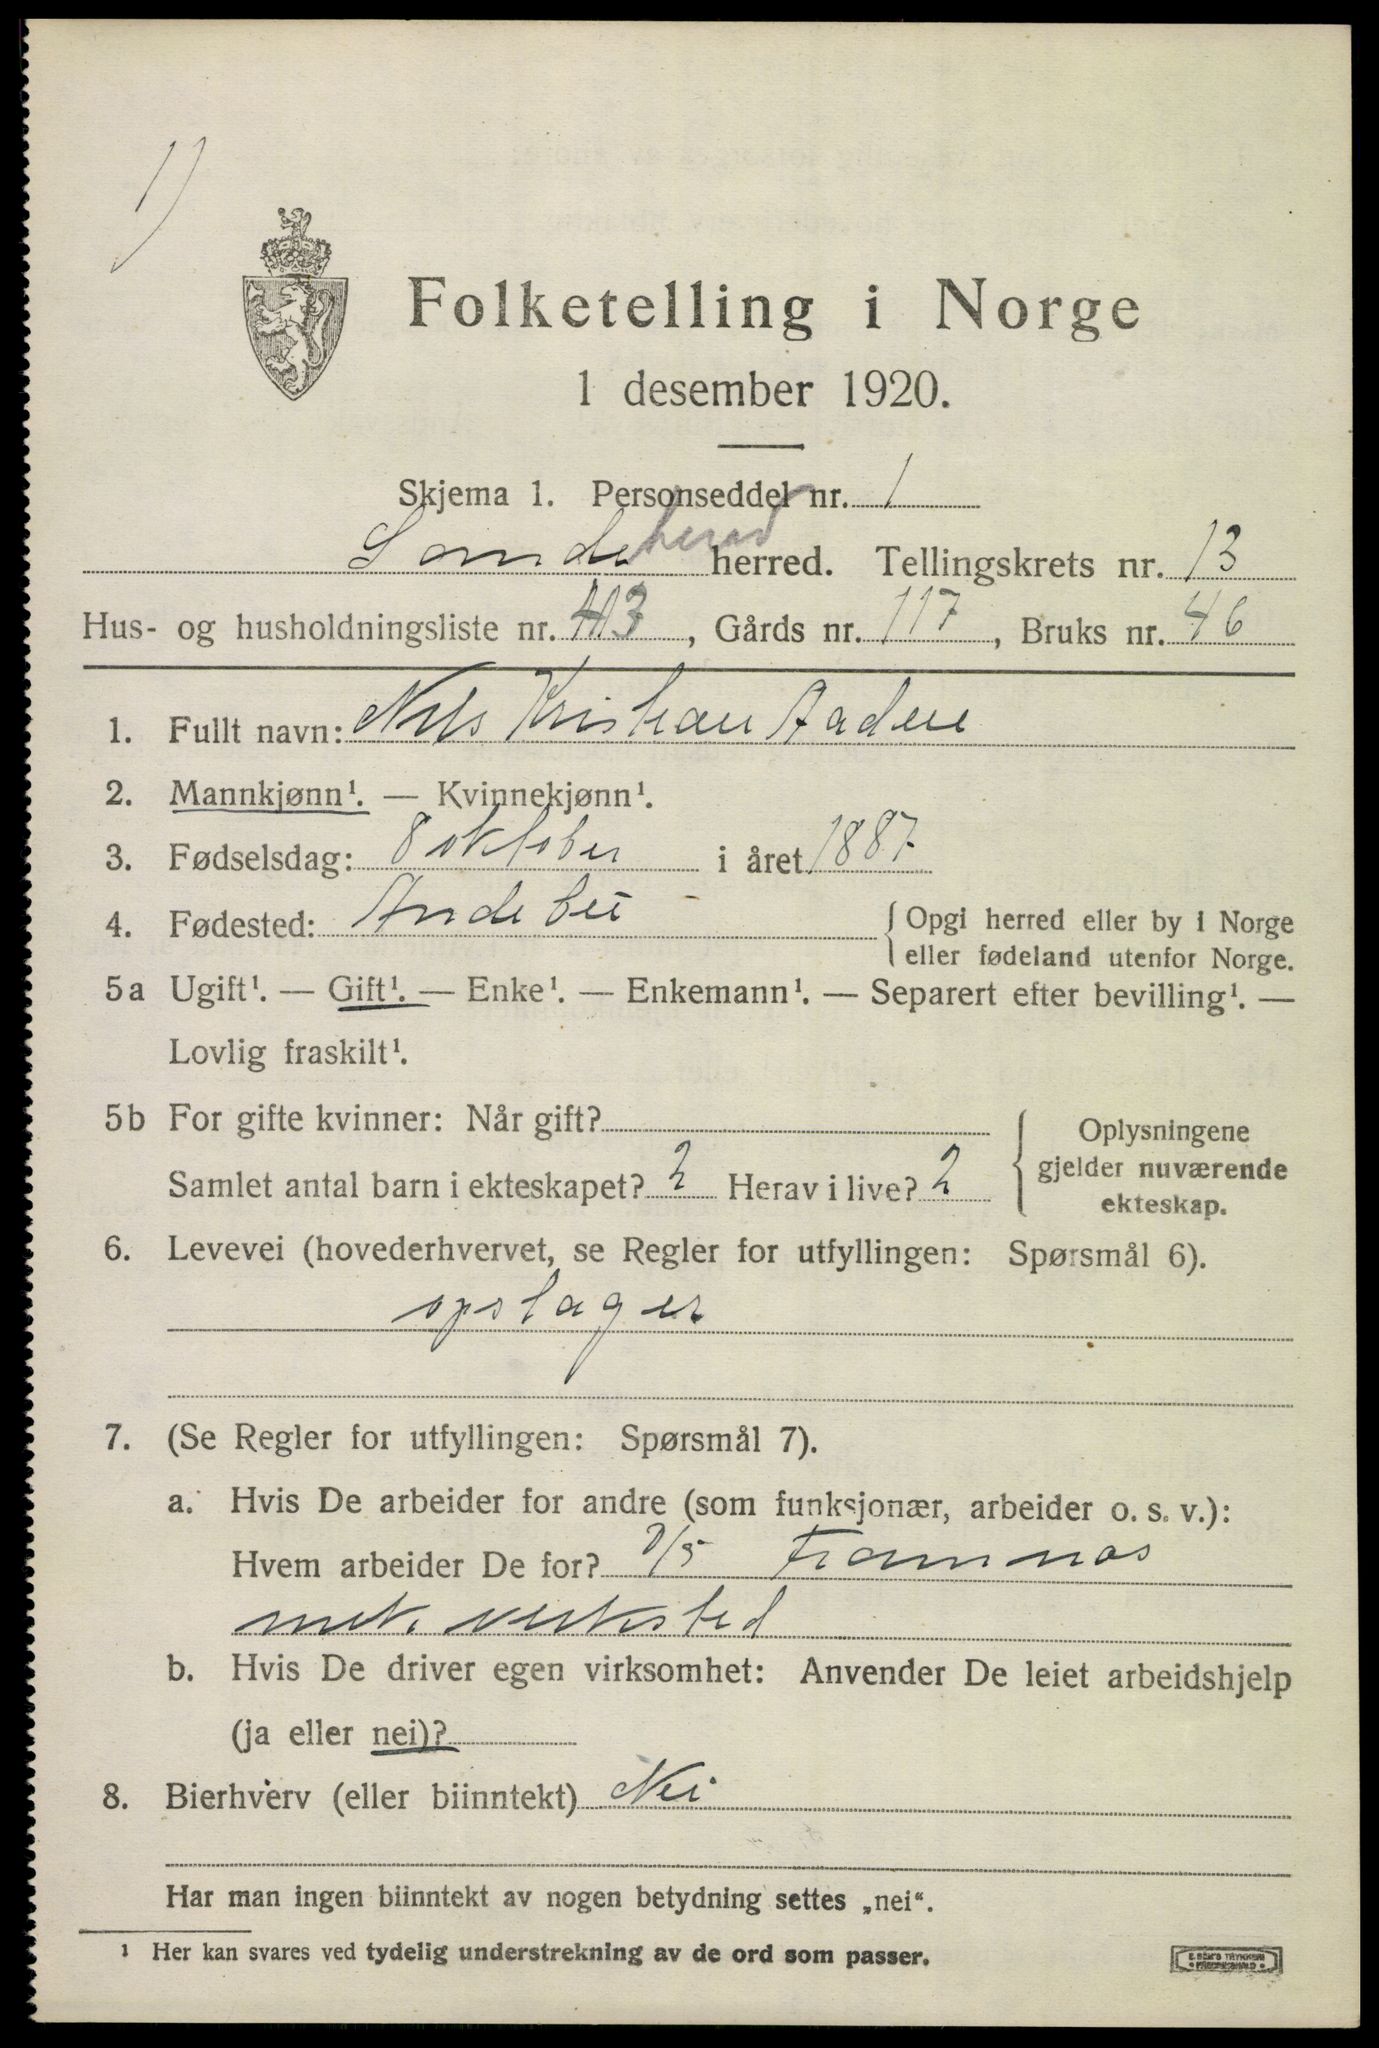 1)
Folketelling i Norge
1 desember 1920.
Skjema 1. Personseddel nr. 1
Sandeherad herred. Tellingskrets nr. 13
Hus- og husholdningsliste nr. 413, Gårds nr. 117, Bruks nr. 46
1. Fullt navn: Nils Kristian Aadne
2. Mannkjønn¹. — Kvinnekjønn¹.
3. Fødselsdag: 8 oktober i året 1887
4. Fødested: Andebu { Opgi herred eller by i Norge
eller fødeland utenfor Norge.
5a Ugift¹. — Gift¹. — Enke¹. — Enkemann¹. — Separert efter bevilling¹. —
Lovlig fraskilt¹.
5b For gifte kvinner: Når gift?
Samlet antal barn i ekteskapet? 2 Herav i live? 2
{ Oplysningene
gjelder nuværende
ekteskap.
6. Levevei (hovederhvervet, se Regler for utfyllingen: Spørsmål 6).
opslager
7. (Se Regler for utfyllingen: Spørsmål 7).
a. Hvis De arbeider for andre (som funksjonær, arbeider o. s. v.):
Hvem arbeider De for? Framnæs
mek. verksted
b. Hvis De driver egen virksomhet: Anvender De leiet arbeidshjelp
(ja eller nei)?
8. Bierhverv (eller biinntekt) Nei
Har man ingen biinntekt av nogen betydning settes „nei“.
¹ Her kan svares ved tydelig understrekning av de ord som passer.